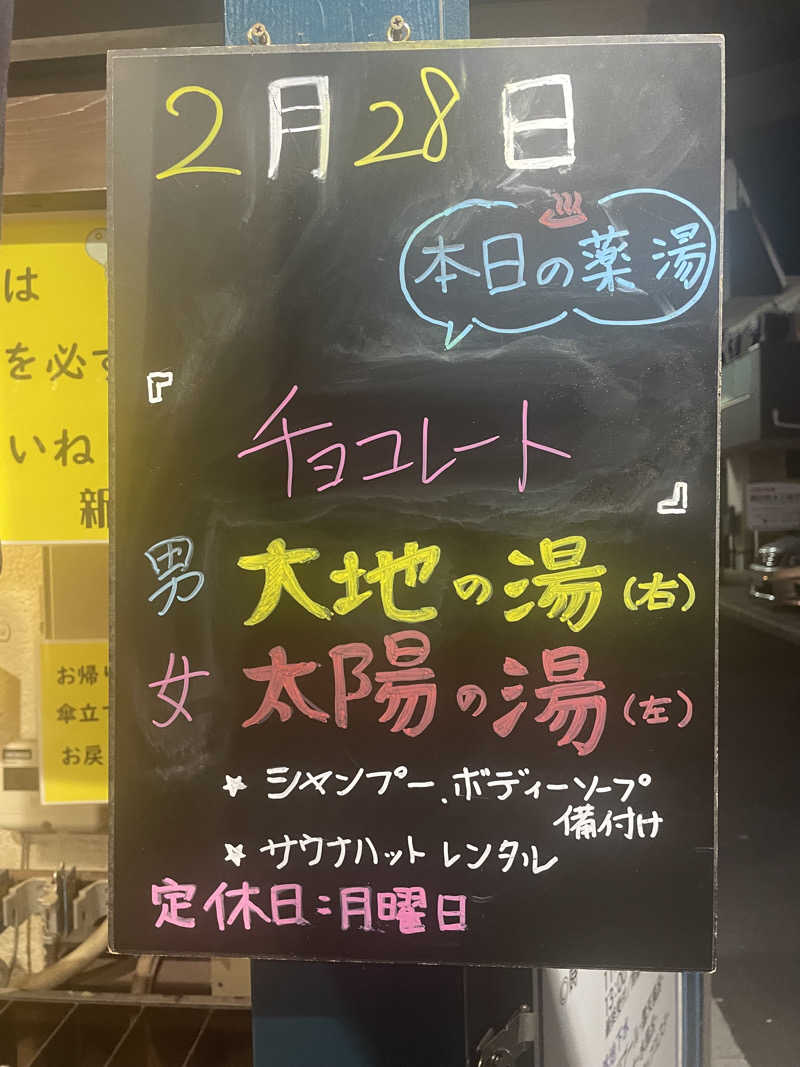 2月28日
本日の薬湯
『
チョコレート
』
男 大地の湯(右)
女 太陽の湯(左)
☆シャンプー、ボディーソープ
備付け
☆サウナハットレンタル
定休日:月曜日
は
を必ず
いね
新
お帰り
傘立て
お戻